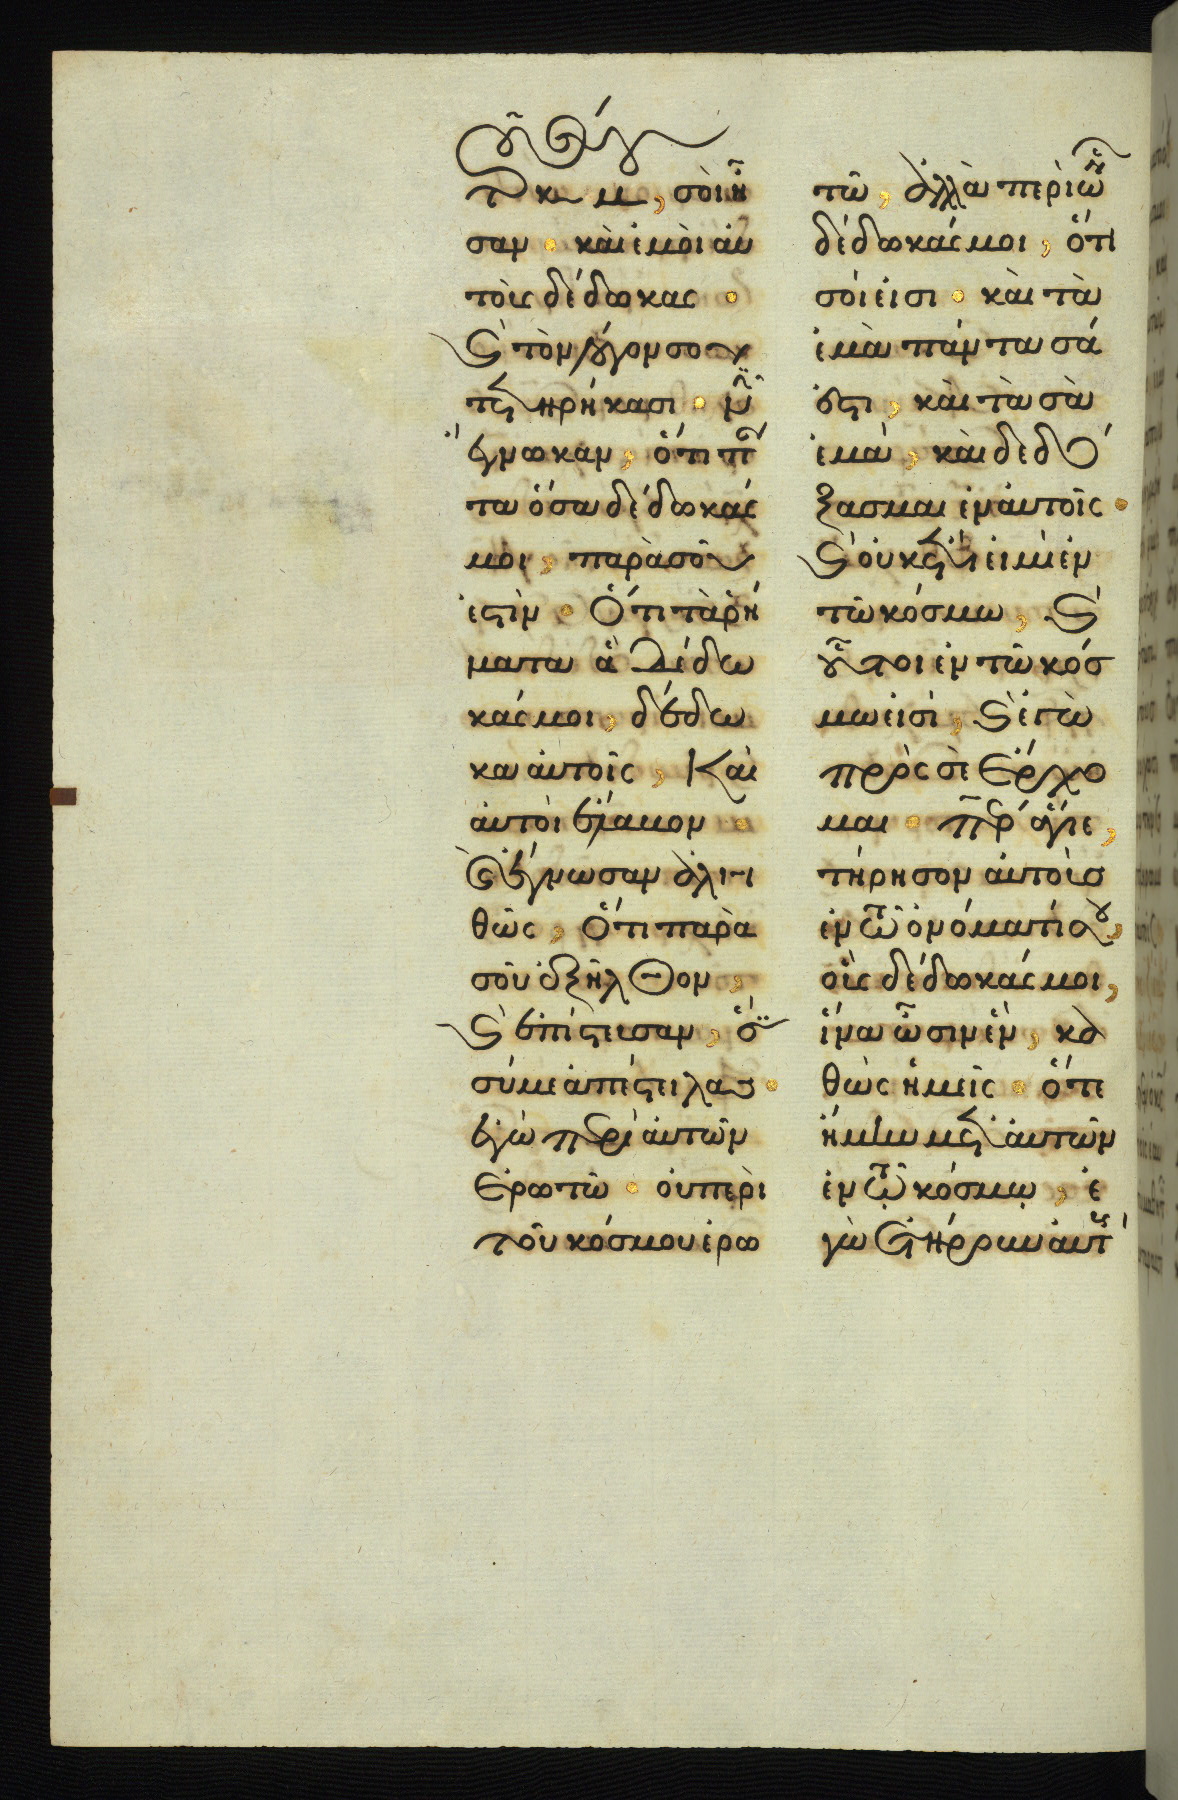 τ κ μ, σοὶ ἦ
σαν · καὶ ἐμοὶ αὐ
τοὺς δέδωκας ·
Ϛ τὸν λόγον σου
τετηρήκασι · νῦν
ἔγνωκαν, ὅτι πάν
τα ὅσα δέδωκάς
μοι, παρὰ σοῦ
ἐστὶν · Ὅτι τὰ ῥή
ματα ἃ δέδω
κάς μοι, δέδω
κα αὐτοῖς, Καὶ
αὐτοὶ ἔλαβον ·
Ϛ ἔγνωσαν ἀλη
θῶς, Ὅτι παρὰ
σοῦ ἐξῆλθον,
Ϛ ἐπίστευσαν, ὅτι
σύ με ἀπέστειλας ·
ἐγὼ περὶ αὐτῶν
ἐρωτῶ · οὐ περὶ
τοῦ κόσμου ἐρω
τῶ, ἀλλὰ περὶ ὧν
δέδωκάς μοι, ὅτι
σοί εἰσι · καὶ τὰ
ἐμὰ πάντα σά
ἐστι, καὶ τὰ σὰ
ἐμά, καὶ δεδό
ξασμαι ἐν αὐτοῖς ·
Ϛ οὐκ ἔτι εἰμὶ ἐν
τῶ κόσμω, Ϛ
οὗτοι ἐν τῶ κόσ
μω εἰσί, Ϛ ἐγὼ
πρὸς σὲ ἔρχο
μαι · περ ἅγιε,
τήρησον αὐτοὺς
ἐν τῶ ὀνόματί σου,
οὓς δέδωκάς μοι,
ἵνα ὦσιν ἓν, κα
θὼς ἡμεῖς · ὅτε
ἤμην μετ' αὐτῶν
ἐν τῶ κόσμω, ἐ
γὼ ἐτήρουν αὐτοὺς